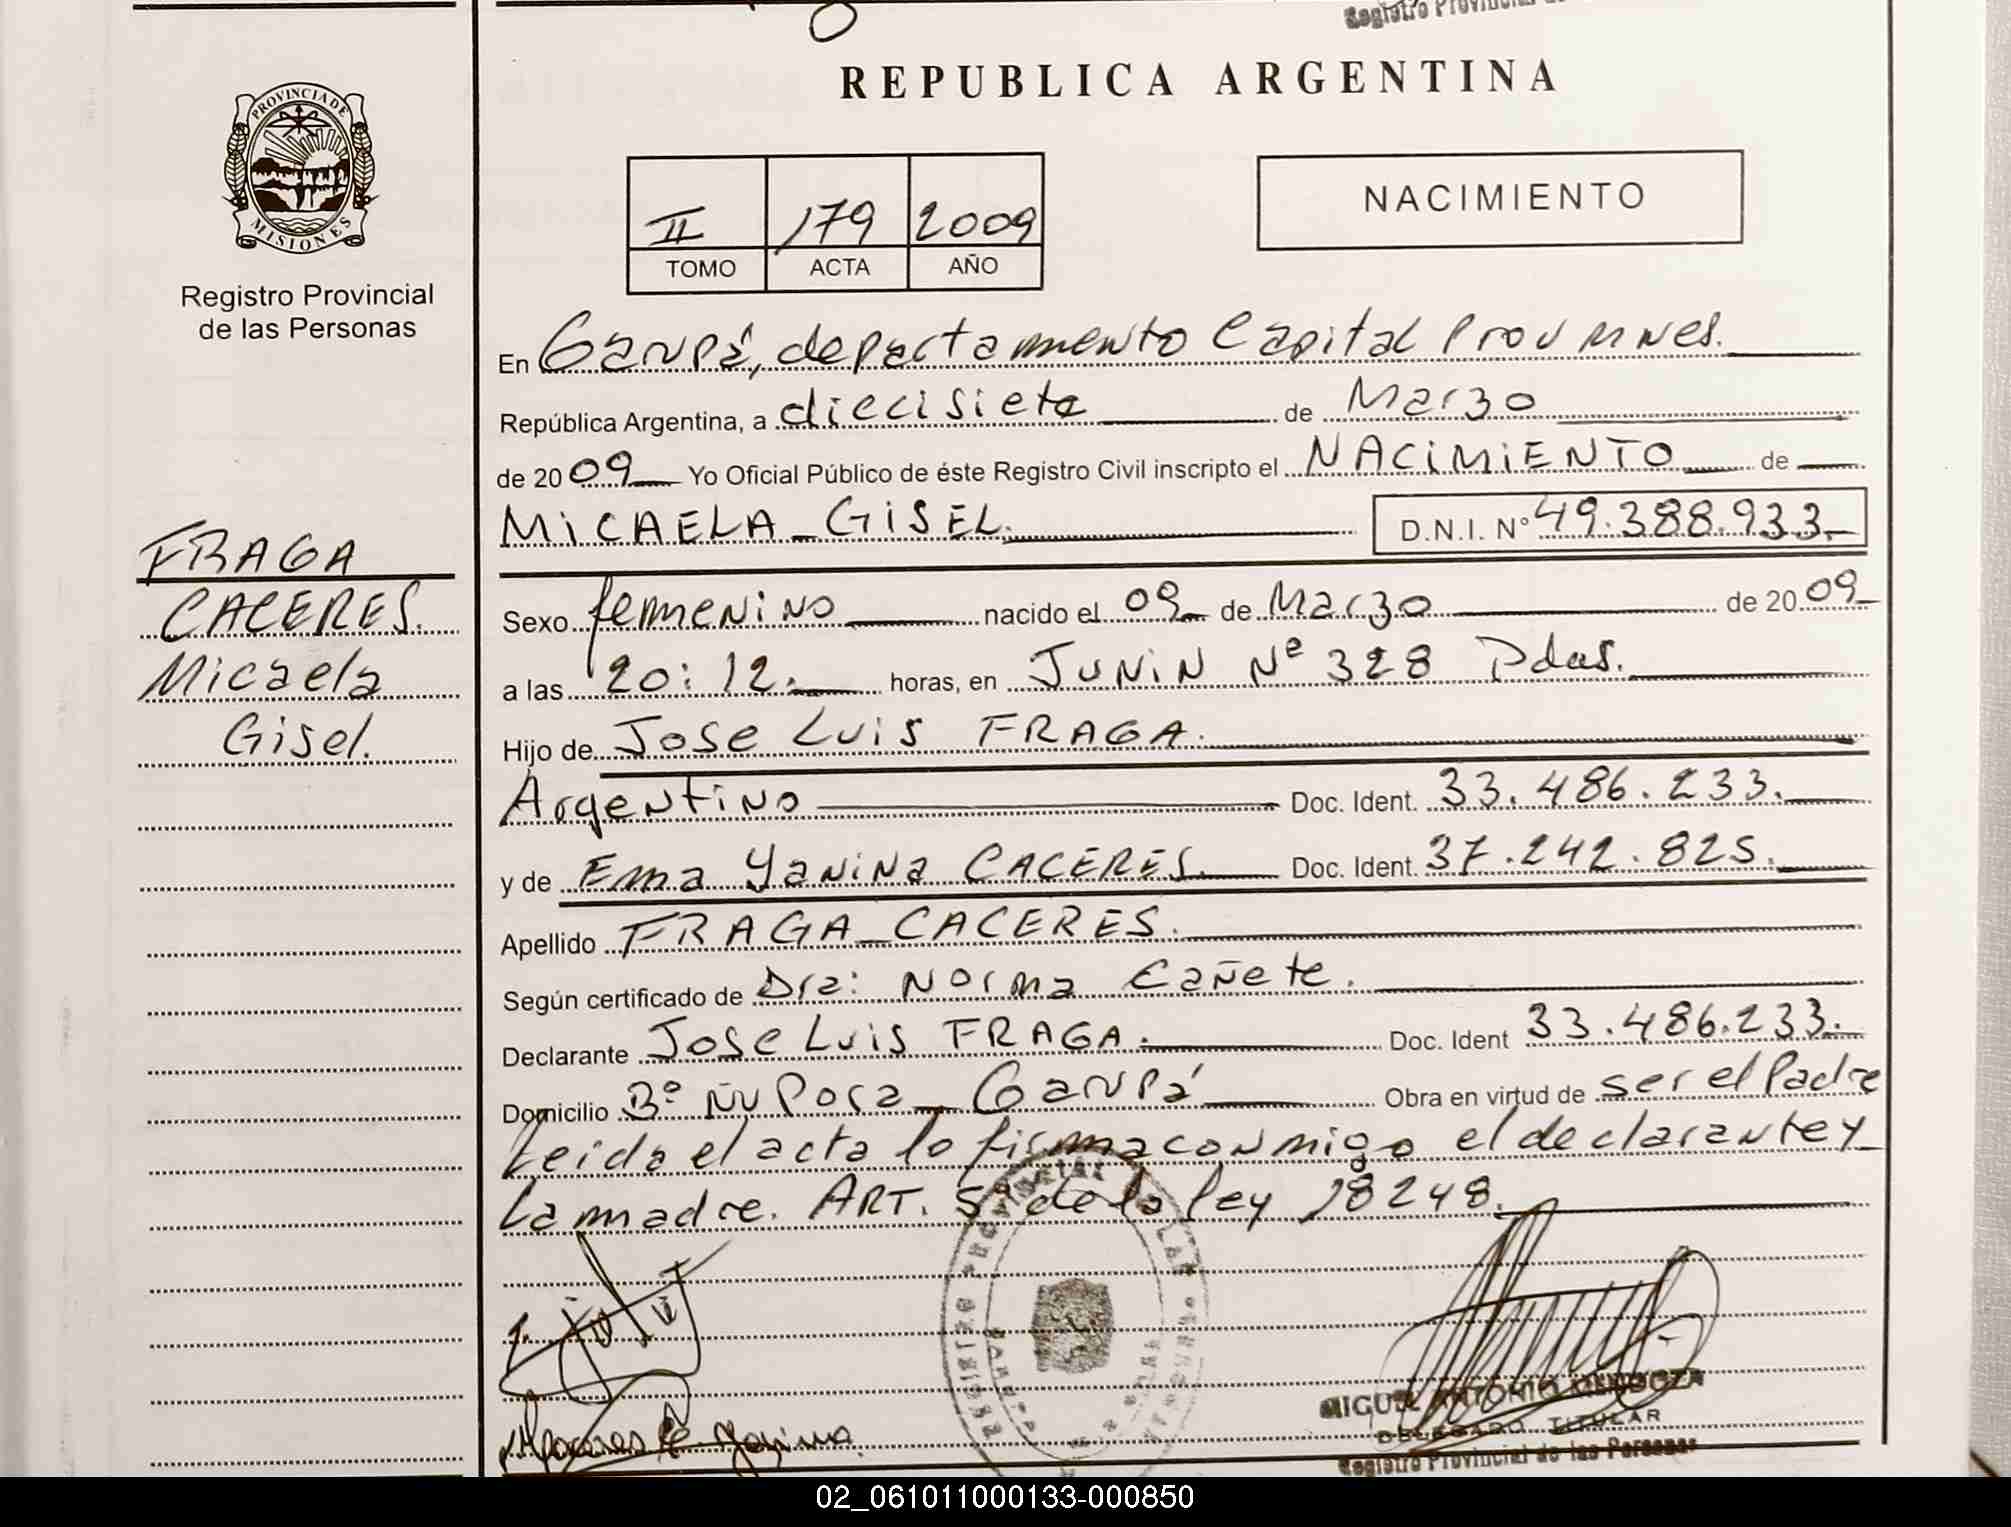 Registro Provincial de
REPUBLICA ARGENTINA
PROVINCIA DE
MISIONES
Registro Provincial
de las Personas
II 179 2009
TOMO ACTA AÑO
NACIMIENTO
En Garupá, departamento Capital Prov Mnes.
República Argentina, a diecisiete de Marzo
de 2009 Yo Oficial Público de éste Registro Civil inscripto el NACIMIENTO de
MICAELA GISEL. D.N.I. N° 49.388.933.
FRAGA
CACERES.
Micaela
Gisel.
Sexo femenino nacido el 09 de Marzo de 2009
a las 20:12. horas, en JUNIN Nº 328 Pdas.
Hijo de Jose Luis FRAGA.
Argentino Doc. Ident. 33.486.233.
y de Ema Yanina CACERES. Doc. Ident. 37.242.825.
Apellido FRAGA CACERES.
Según certificado de Dra: Norma Cañete.
Declarante Jose Luis FRAGA. Doc. Ident 33.486.233.
Domicilio Bº Ñu Pora Garupá Obra en virtud de ser el Padre
Leida el acta lo firma conmigo el declarante y
la madre. ART. 5º de la ley 18248.
MIGUEL ANTONIO MENDOZA
DELEGADO TITULAR
Registro Provincial de las Personas
02_061011000133-000850